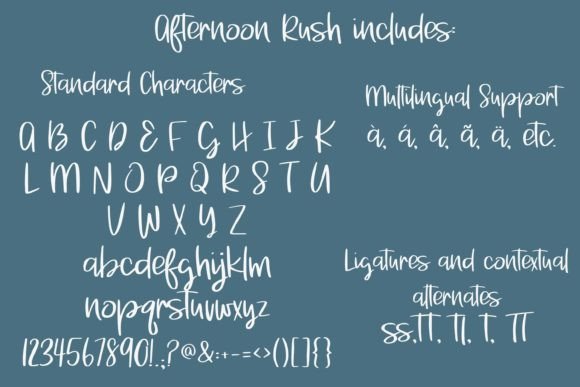 Afternoon Rush includes:
Standard Characters
A B C D E F G H I J K
L M N O P Q R S T U
V W X Y Z
abcdefghijklm
nopqrstuvwxyz
1234567890!.,;?@&:+-=<>()[]{}
Multilingual Support
à, á, â, ã, ä, etc.
Ligatures and contextual
alternates
ss,TT, Tl, T, TT